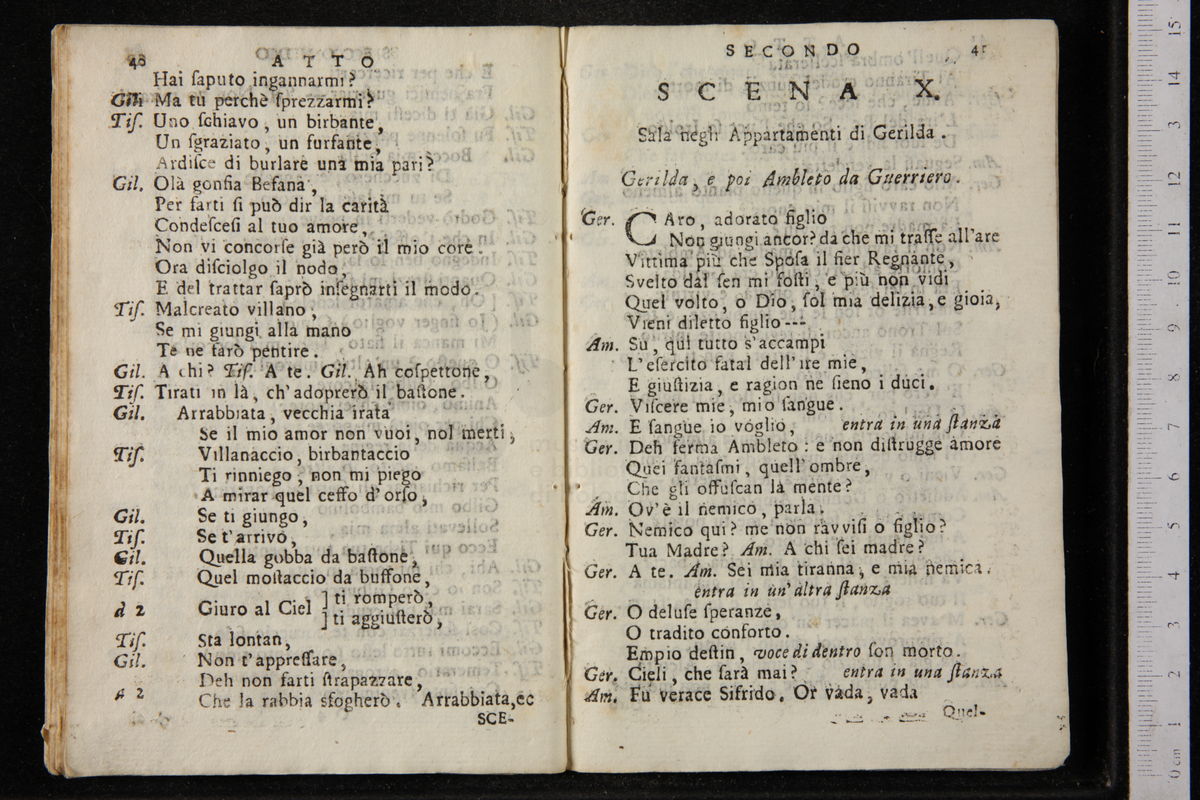 40 ATTO
Hai ſaputo ingannarmi?
Gil. Ma tu perchè ſprezzarmi?
Tiſ. Uno ſchiavo, un birbante,
Un ſgraziato, un furfante,
Ardiſce di burlare una mia pari?
Gil. Olà gonfia Befana,
Per farti ſi può dir la carità
Condeſceſi al tuo amore,
Non vi concorſe già però il mio core
Ora diſciolgo il nodo,
E del trattar ſaprò inſegnarti il modo.
Tiſ. Malcreato villano,
Se mi giungi alla mano
Te ne farò pentire.
Gil. A chi? Tiſ. A te. Gil. Ah coſpettone,
Tiſ. Tirati in là, ch'adoprerò il baſtone.
Gil. Arrabbiata, vecchia irata
Se il mio amor non vuoi, nol merti;
Tiſ. Villanaccio, birbantaccio
Ti rinniego, non mi piego
A mirar quel ceffo d'orſo,
Gil. Se ti giungo,
Tiſ. Se t'arrivo,
Gil. Quella gobba da baſtone,
Tiſ. Quel moſtaccio da buffone,
a 2 Giuro al Ciel ] ti romperò,
] ti aggiuſterò,
Tiſ. Sta lontan,
Gil. Non t'appreſſare,
Deh non farti ſtrapazzare,
a 2 Che la rabbia sfogherò. Arrabbiata,ec
SCE-
SECONDO 41
SCENA X.
Sala negli Appartamenti di Gerilda.
Gerilda, e poi Ambleto da Guerriero.
Ger. CAro, adorato figlio
Non giungi ancor? da che mi traſſe all'are
Vittima più che Spoſa il fier Regnante,
Svelto dal ſen mi foſti, e più non vidi
Quel volto, o Dio, ſol mia delizia, e gioia,
Vieni diletto figlio---
Am. Sù, qui tutto s'accampi
L'eſercito fatal dell'ire mie,
E giuſtizia, e ragion ne ſieno i duci.
Ger. Viſcere mie, mio ſangue.
Am. E ſangue io voglio, entra in una ſtanza
Ger. Deh ferma Ambleto: e non diſtrugge amore
Quei fantaſmi, quell'ombre,
Che gli offuſcan la mente?
Am. Ov'è il nemico, parla.
Ger. Nemico qui? me non ravviſi o figlio?
Tua Madre? Am. A chi ſei madre?
Ger. A te. Am. Sei mia tiranna, e mia nemica.
entra in un'altra ſtanza
Ger. O deluſe ſperanze,
O tradito conforto.
Empio deſtin, voce di dentro ſon morto.
Ger. Cieli, che ſarà mai? entra in una ſtanza
Am. Fù verace Sifrido. Or vada, vada
Quel-
15
14
3
11
12
10
9
8
7
6
5
4
3
2
1
0 cm